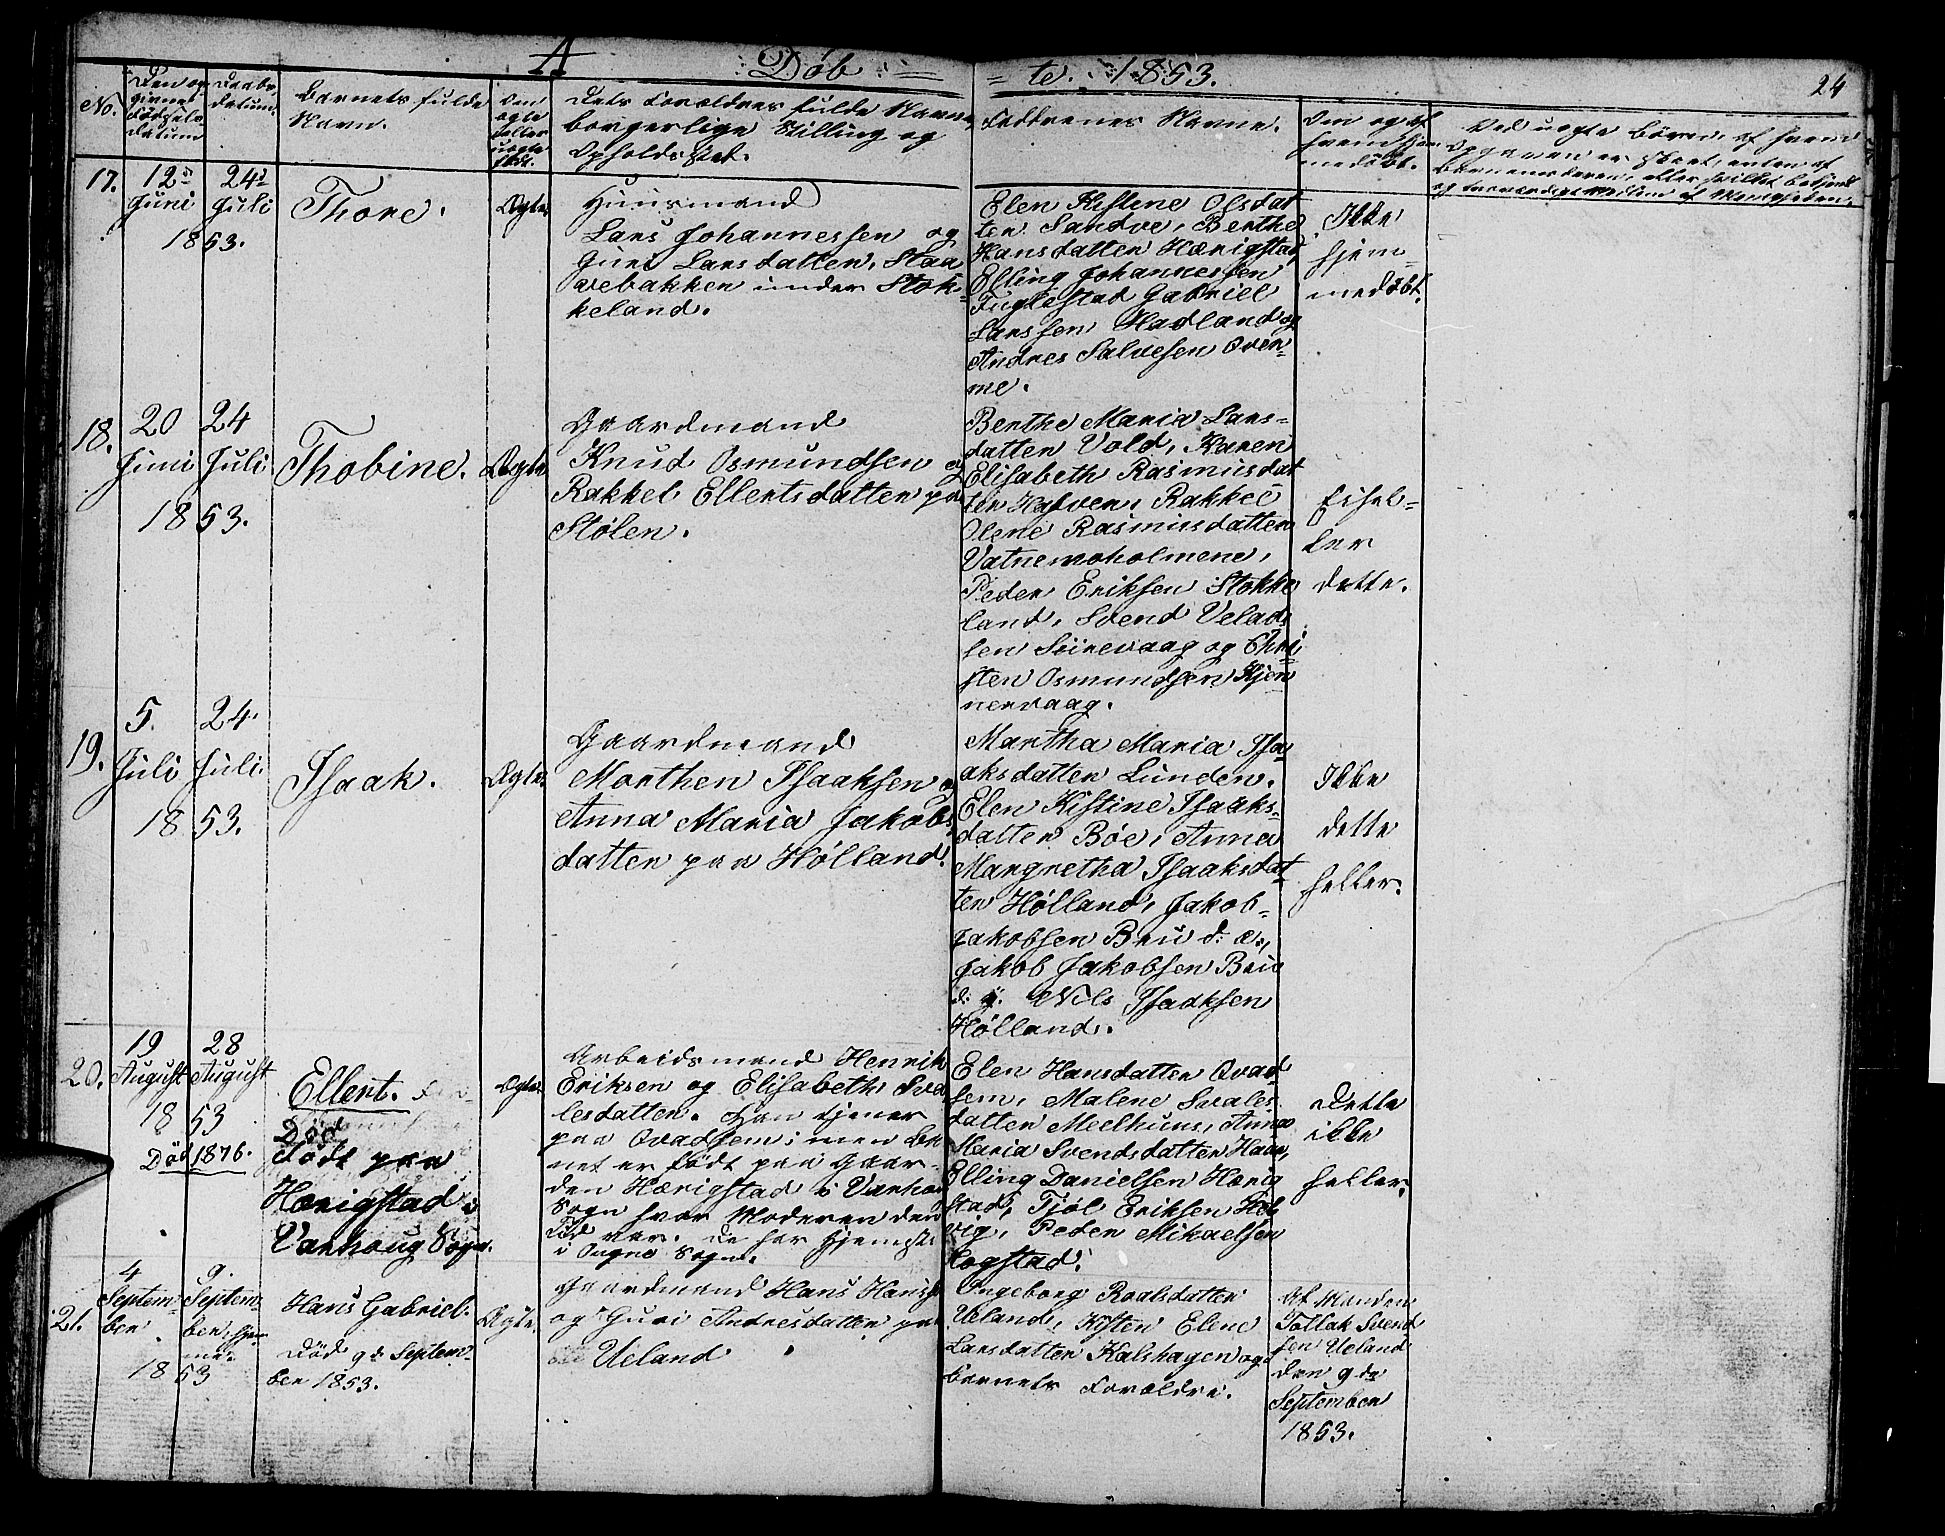 A
Døb - te. 1853.
24
No.
Den op
givne
Fødsels
Datum
Daabs
datum.
Barnets fulde
Navn.
Om
ægte
eller
uægte
født.
Dets Forældres fulde Navne,
borgerlige Stilling og
Opholds Sted.
Faddrenes Navne.
Om og af
hvem hjem
medøbt.
Ved uægte Børn, af hvem
Opgaven er skeet, enten af
17.
12te
Juni
24de
Juli
1853.
Thore.
Ægte
Huusmand
Lars Johannessen og
Guri Larsdatter, Staa
vebakken under Stok-
keland.
Elen Kistine Olsdat
ter Sandve, Berthe
Hansdatter Hærigstad,
Elling Johannessen
Fuglestad Gabriel
Larssen Hadland og
Andres Salvesen Ovin-
me.
Ikke
hjem-
medøbt.
18.
20
Juni
24
Juli
1853.
Thobine.
Ægte
Gaardmand
Knud Osmundsen og
Rakkel Ellertsdatter paa
Stølen.
Berthe Maria Lars-
datter Vold, Karen
Elisabeth Rasmusdat
ter Hytven, Rakkel
Olene Rasmusdatter
Vatnemoholmene,
Peder Eriksen Stokke
land, Svend Velads
sen Siirevaag og Chri
sten Osmundsen Kjør
nervaag.
Eihel-
ler
dette.
19.
5.
Juli
24.
Juli.
1853.
Isaak.
Ægte.
Gaardmand
Morthen Isaaksen og
Anna Maria Jakobs
datter paa Hølland.
Martha Maria Isa-
aksdatter Lunden.
Elen Kistine Isaaks-
datter Bøe, Anna
Margretha Isaaksdat
ter Hølland, Jakob-
Jakobsen Bru d. æ.,
Jakob Jakobsen Bru
d. y. Nils Isaaksen
Hølland.
Ikke
dette
heller.
20.
19
August
28
August
1853
Død 1876.
Ellert.
Død
Født paa
Hærigstad i
Varhoug Sogn.
Ægte.
Arbeidsmand Henrik
Eriksen og Elisabeth Sva
lesdatter. Han tjener
paa Qvadsem; men Ba
net er født paa Gaar-
den Hærigstad i Varhou
Sogn hvor Moderen den
Tid var. De har Hjemst.
i Ougne Sogn.
Elen Hansdatter Qvad
sem, Malene Svales
datter Meelhuus, Anna
Maria Svendsdatter Haar,
Elling Danielsen Hærig
stad, Tjøl Eriksen Hel
vig, Peder Mikaelsen
Dette
ikke
heller.
21.
4
Septem-
ber
9.
Septem
ber, hjem
me.
1853
Hans Gabriel.
Død 9de Septem-
ber 1853.
Ægte.
Gaardmand Hans Hanss
og Guri Andresdatter paa
Ueland
Ingeborg Roalsdatter
Ueland, Kisten Elene
Larsdatter Kalshagen og
Barnets Forældre.
Af Manden
Tollak Svend
sen Ueland
den 9de
September
1853.